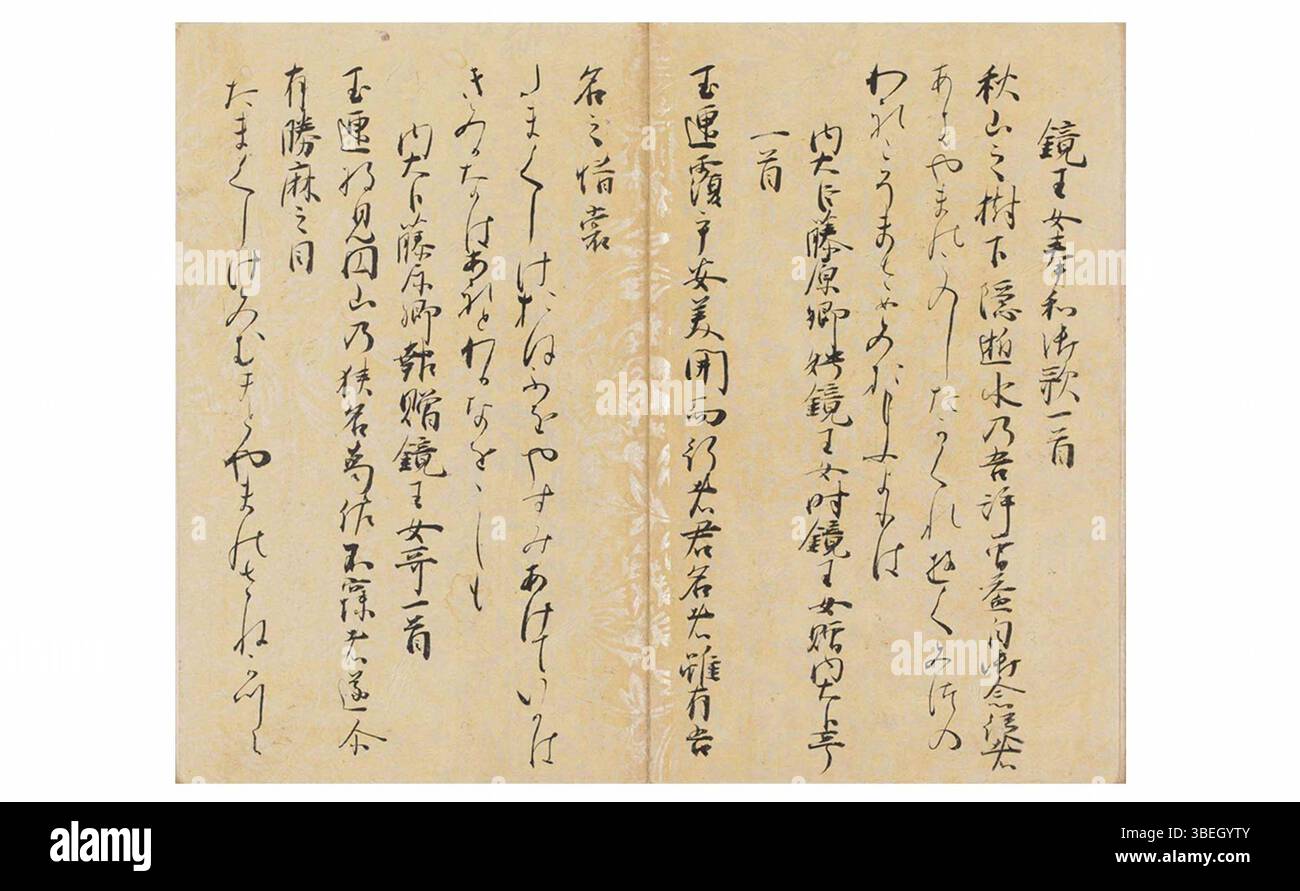 鏡王女奉和御歌一首
秋山之樹下隠逝水乃吾許曽益目御念従者
あきやまのこのしたかくれゆくみつの
われこそまさめみおもふよりは
内大臣藤原卿娉鏡王女時鏡王女贈内大臣哥
一首
玉匣覆乎安美開而行者君名者雖有吾
名之惜裳
たまくしけおほふをやすみあけていかは
きみかなはあれとわかなをしゝも
内大臣藤原卿報贈鏡王女哥一首
玉匣将見円山乃狭名葛佐不寐者遂尓
有勝麻之目
たまくしけみむまとやまのさねかつら
alamy
Image ID: 3BEGYTY
www.alamy.com